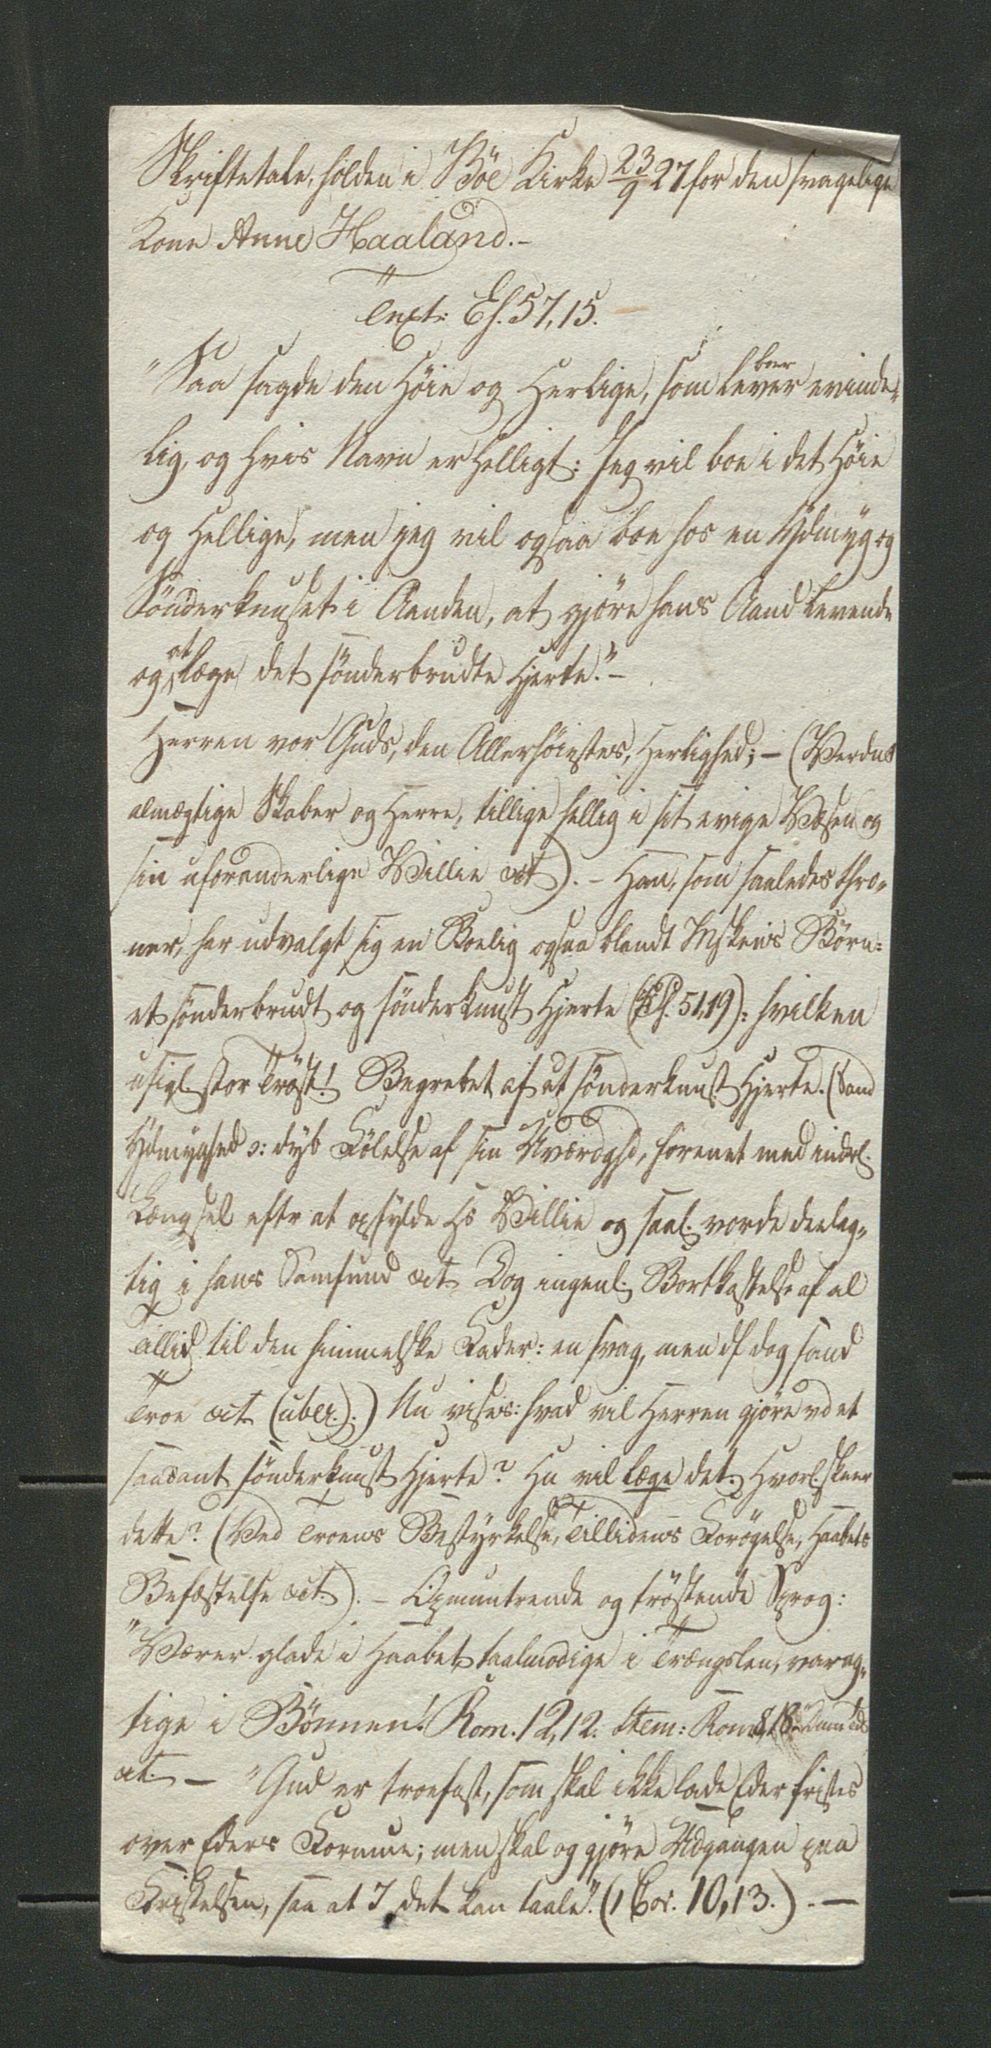 Skriftetale, holden i Böe Kirke 23/9 27 for den svagelige
Kone Anne Haaland.-
Text: Es. 57,15.
"Saa sagde den Høie og Herlige, som lever boer evinde-
lig, og hvis Navn er Helligt: Jeg vil boe i det Høie
og Hellige, men jeg vil ogsaa boe hos en Ydmyg og
Sønderknuset i Aanden, at gjøre hans Aand levende
og at læge det sønderbrudte Hjerte."-
Herren vor Guds, den Allerhøiestes, Herlighed; - (Verdns
almægtige Skaber og Herre, tillige hellig i sit evige Væsen og
sin uforanderlige Villie etc). - Han, som saaledes thro-
ner, har udvalgt sig en Boelig ogsaa blandt Mskens Børn:
et sønderbrudt og sønderknust Hjerte (Ps. 51,19): hvilken
usigl. stor Trøst! Begrebet af et sønderknust Hjerte. (Sand
Ydmyghed ɔ: dyb Følelse af sin Uværdghd, forenet med inderl.
Længsel efter at opfylde Hs Villie og saal. vorde deelag-
tig i hans Samfund etc. Dog ingenl. Bortkastelse af al
Tillid til den himmelske Fader: en svag, men df dog sand
Troe etc. (uber.).) Nu vises: hvad vil Herren gjøre vd et
saadant sønderknust Hjerte? Hn vil læge det. Hvorl. skeer
dette? (Ved Troens Bestyrkelse, Tillidens Forøgelse, Haabets
Befæstelse etc.). - Opmuntrende og trøstende Sprog:
"Værer glade i Haabet, taalmodige i Trængslen, varag-
tige i Bønnen! Rom. 12,12. Item: Rom. 8,18
etc. - "Gud er troefast, som skal ikke lade Eder fristes
over Eders Formue; men skal og gjøre Udgangen paa
Fristelsen, saa at I det kan taale." (1 Cor. 10,13.). -